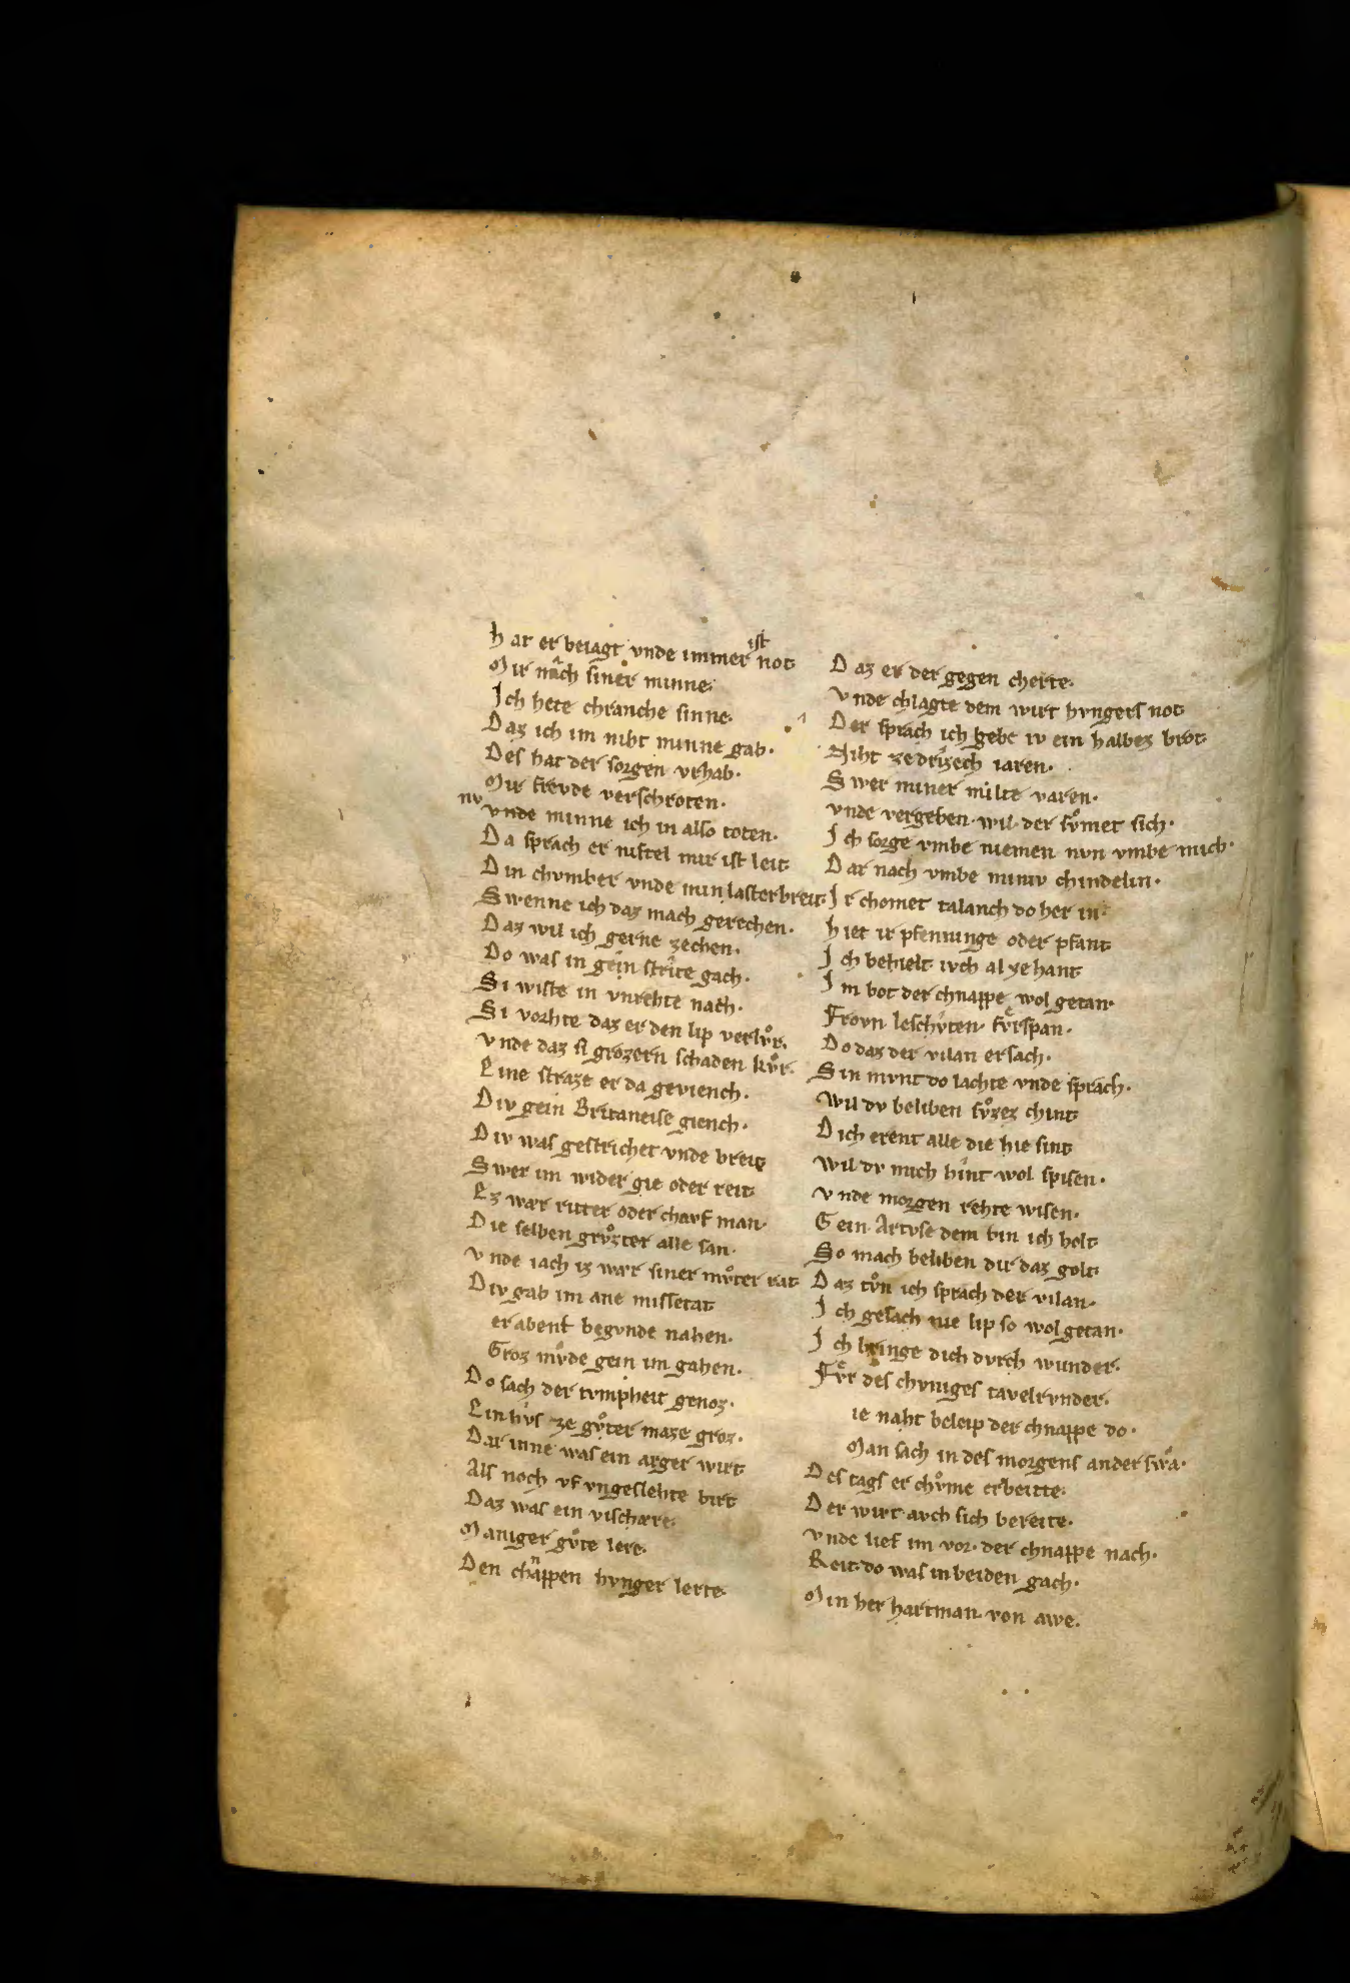 Hat er beiagt vnde immer ist not
Mir nach siner minne.
Ich hete chranche sinne.
Daz ich im niht minne gab.
Des hat der sorgen vrhab.
Mir frevde verschroten.
nv vnde minne ich in also toten.
Da sprach er niftel mir ist leit
Din chvmber vnde min laster breit.
Swenne ich daz mach gerechen.
Daz wil ich gerne zechen.
Do was in gein strite gach.
Si wiste in vnrehte nach.
Si vorhte daz er den lip verlvͦr.
Vnde daz si grozern schaden kvͦr.
Eine straze er da geviench.
Div gein Britaneise giench.
Div was gestrichet vnde breit
Swer im wider gie oder reit
Ez wær ritter oder chavf man.
Die selben grvͦzter alle san.
Vnde iach iz wær siner mvͦter rat
Div gab im ane missetat
er abent begvnde nahen.
Groz mvͦde gein im gahen.
Do sach der tvmpheit genoz.
Ein hvs ze gvͦter maze groz.
Dar inne was ein arger wirt
Als noch vf vngeslehte birt
Daz was ein vischære.
Maniger gvͦte lere.
Den chnappen hvnger lerte
Daz er der gegen cherte.
Vnde chlagte dem wirt hvngers not
Der sprach ich gebe iv ein halbez brot
Niht ze drizech iaren.
Swer miner milte varen.
Vnde vergeben wil der svͦmet sich.
Ich sorge vmbe niemen nvn vmbe mich.
Dar nach vmbe miniv chindelin.
Ir chomet talanch do her in
Hiet ir pfenninge oder pfant
Ich behielt ivch al zehant
Im bot der chnappe wol getan.
Frovn leschvten fvͤrspan.
Do daz der vilan ersach.
Sin mvnt do lachte vnde sprach.
Wil dv beliben svͦzez chint
Dich erent alle die hie sint
Wil dv mich hint wol spisen.
Vnde morgen rehte wisen.
Gein Artvse dem bin ich holt
So mach beliben dir daz golt
Daz tvͦn ich sprach der vilan.
Ich gesach nie lip so wol getan.
Ich bringe dich dvrch wunder.
Fvͤr des chvniges tavelrvnder.
ie naht beleip der chnappe do.
Man sach in des morgens ander swa.
Des tags er chvͦme erbeitte.
Der wirt avch sich bereite.
Vnde lief im vor. der chnappe nach.
Reit. do was in beiden gach.
Min her hartman von awe.